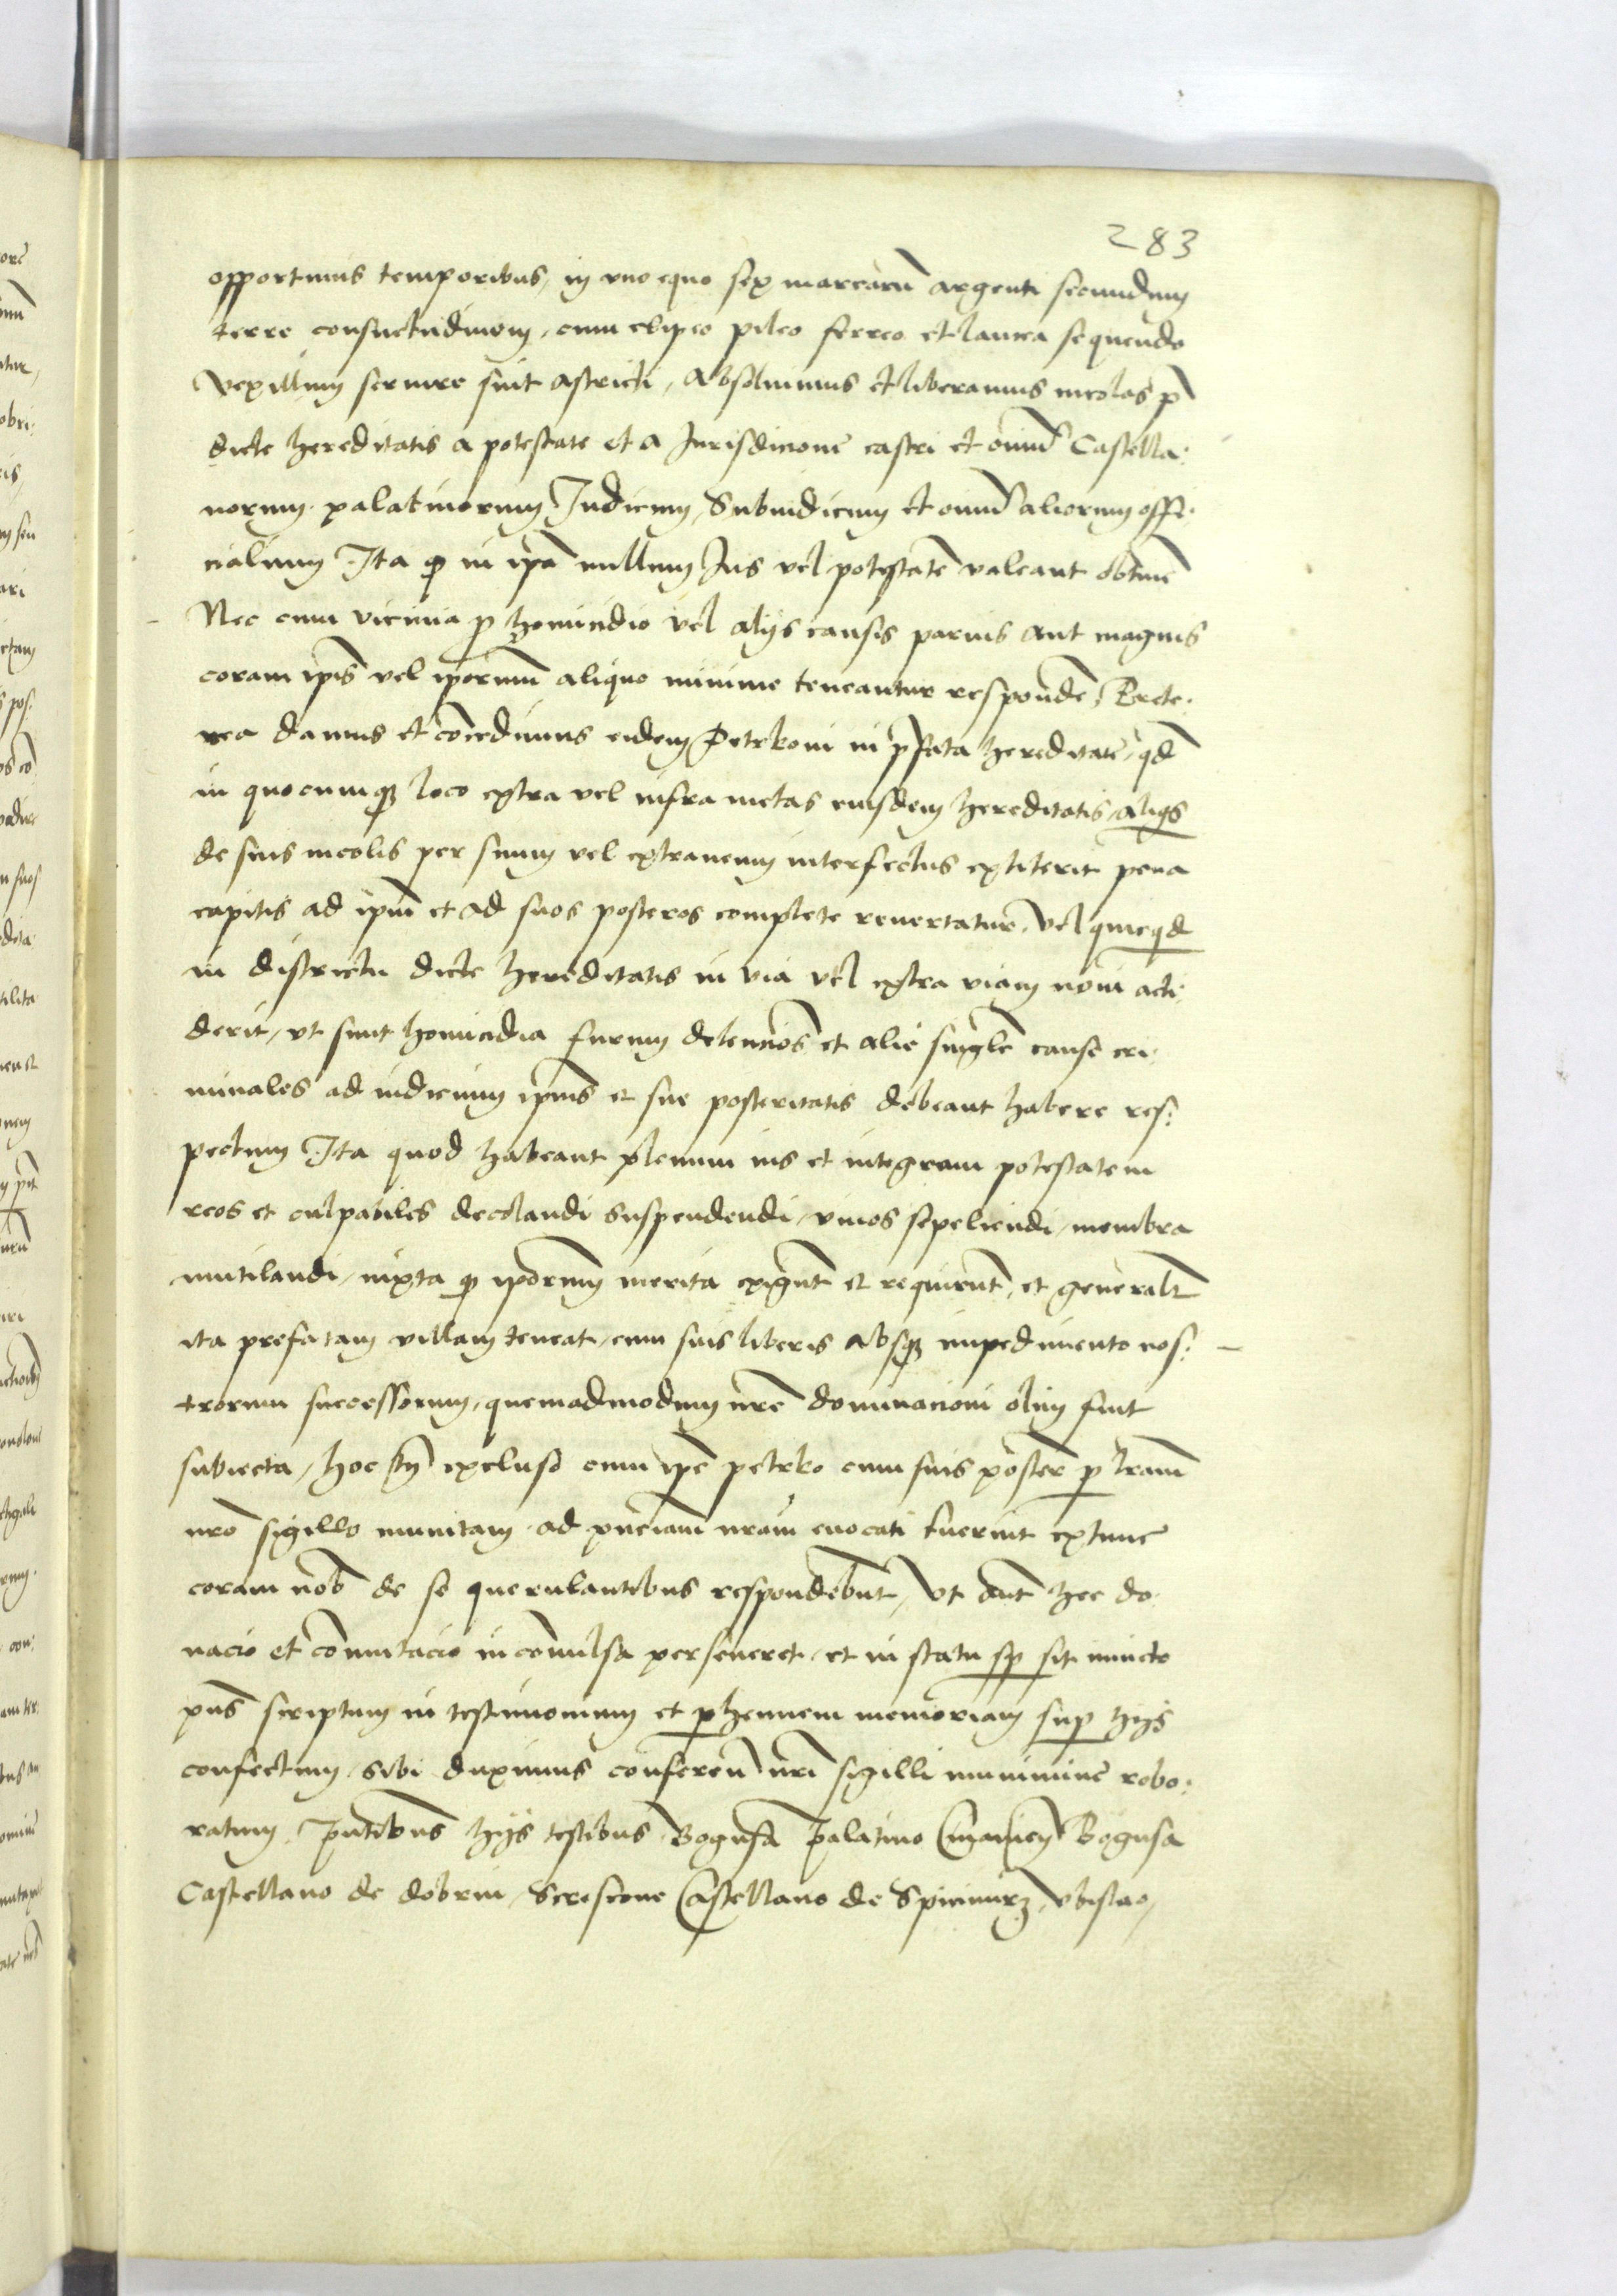 283
opportunis temporibus, in vno equo sex marcarū argenti secundum
terre consuetudinem, cum clipeo pileo ferreo et lancea sequendo
vexillum seruire sint astricti, Absoluimus et liberamus incolas p̄
dicte hereditatis a potestate et a Jurisdicione castri et oīm Castella:
norum palatinorum Judicum, Subiudicum et oīm aliorum offi:
cialium Ita ꝙ in ip̄a nullum Jus vel potestatē valeant obtinē
Nec cum vicinia ꝓ homicidio vel alijs causis paruis aut magnis
coram ip̄is vel ip̄orum aliquo minime teneantur respondē, Prete:
rea damus et concedimus eidem Petrkoni in p̄fata hereditate, qd̄
in quocumqꝫ loco extra vel infra metas eiusdem hereditatis aliq̄s
de suis incolis per suum vel extraneum interfectus extiterit pena
capitis ad ip̄m et ad suos posteros complete reuertatur, vel quicqd̄
in districtu dicte hereditatis in via vel extra viam noui acci
derit, vt sunt homicidia furum detencioēs et alie singule cause cri:
minales ad iudicium ip̄ius et sue posteritatis debeant habere res:
pectum Ita quod habeant plenum ius et integram potestatem
reos et culpabiles decolandi suspendendi, viuos sepeliendi, membra
mutilandi, iuxta ꝙ ip̄orum merita exigūt et requirūt, et generalr̄
ita prefatam villam teneat, cum suis liberis absqꝫ impedimento nos:
trorum successorum, quemadmodum nr̄e dominacioni olim fuit
subiecta, hoc excluso cum ip̄e petrko cum suis poster̄ ꝑ lr̄am
nr̄o sigillo munitam ad pn̄ciam nr̄am euocati fuerint extunc
coram nob̄ de se querulantibus respondebūt, Vt aūt hec do
nacio et cōmutacio inconuulsa perseueret, et in statu sp̄ sit inuicto
pn̄s scriptum in testimonium et ꝑhennem memoriam suꝑ hijs
confectum sibi duximus conferen̄ nr̄i sigilli munimine robo:
ratum, Pn̄tibus hijs testibus Bogusa palatino Bogusa
Castellano de dobrin, Crescone Castellano de Spicimirz, vbislao,